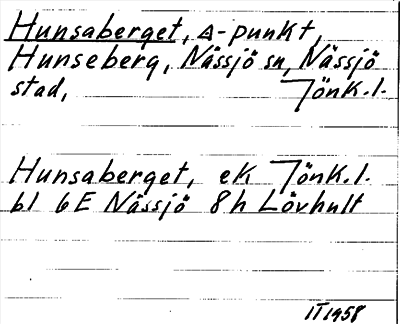 Hunsaberget, △-punkt,
Hunseberg, Nässjö sn, Nässjö
stad, Jönk.l.
Hunsaberget, ek Jönk.l.
bl 6E Nässjö 8h Lövhult
IT1958